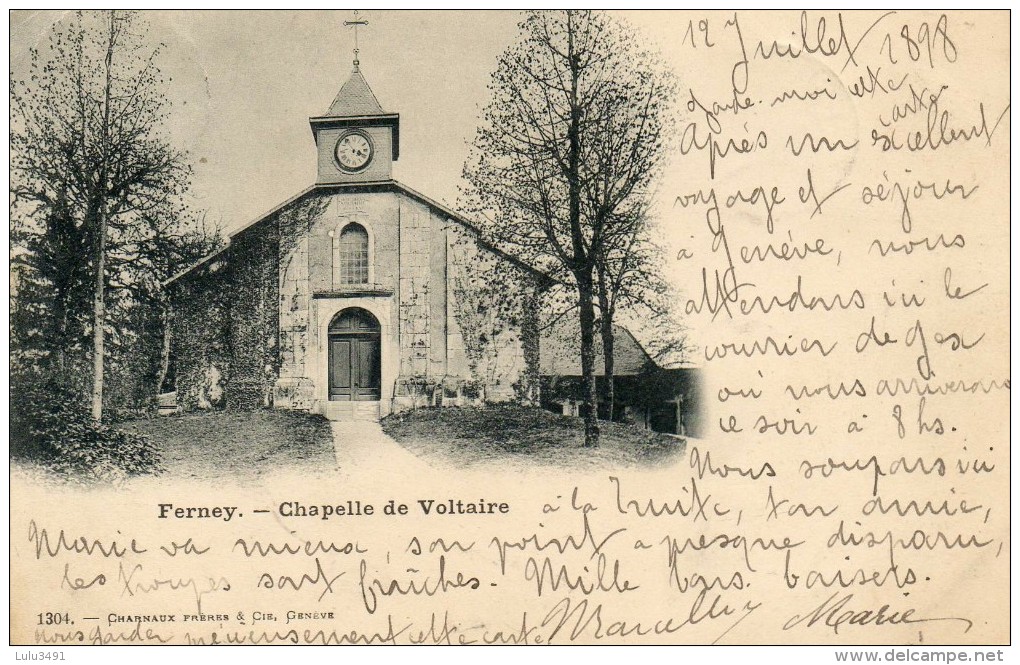 12 Juillet 1898
Garde-moi cette
carte
Après un excellent
voyage et séjour
à Genève, nous
attendons ici le
courrier de Gex
où nous arriverons
ce soir à 8 hs.
Nous soupons ici
à la Truite, ton amie,
Ferney. — Chapelle de Voltaire
Marie va mieux, son point a presque disparu,
les troupes sont fraîches. Mille bons baisers.
1304. — CHARNAUX FRÈRES & CIE, GENÈVE
Marie
nous garder précieusement cette carte
Lulu3491
www.delcampe.net